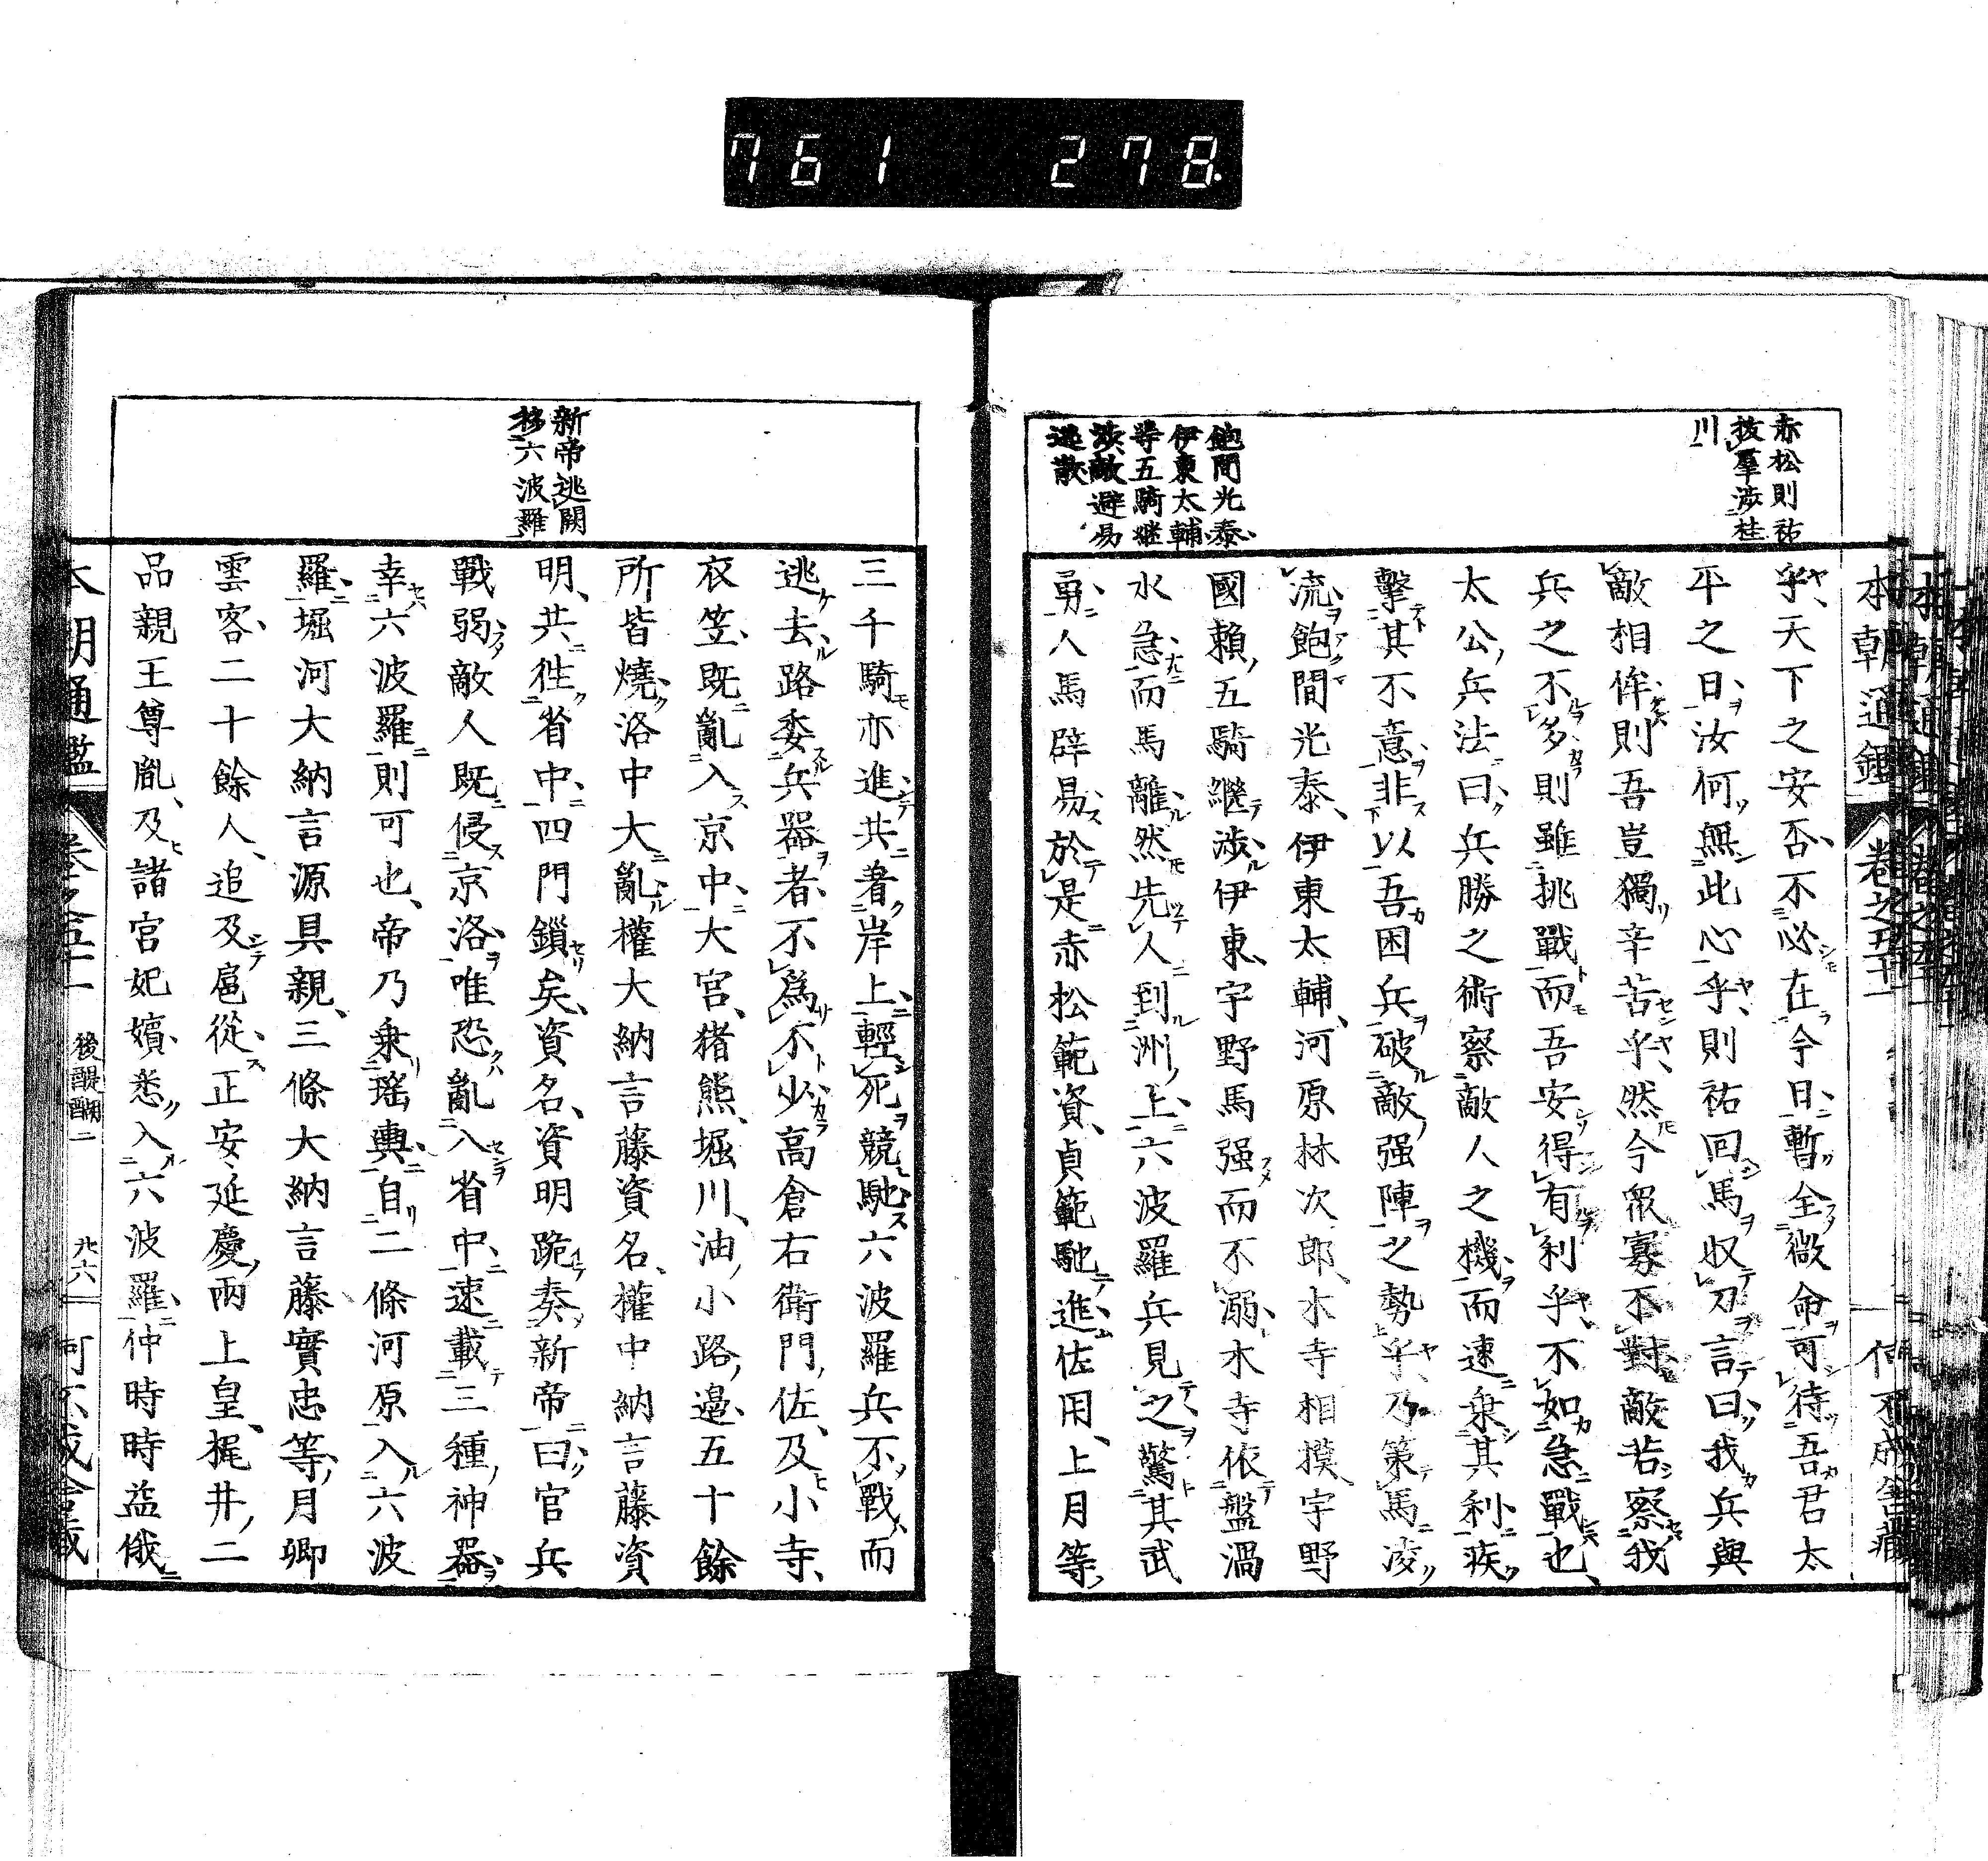 761 278
赤松則祐
抜羣渉桂
川
飽間光泰
伊東太輔
等五騎継
渉敵避易
逃散
乎天下之安否不必在今日暫全微命可待吾君太
平之日汝何無此心乎則祐回馬収刀言曰我兵與
敵相侔則吾豈獨辛苦乎然今衆寡不對敵若察我
兵之不多則雖挑戰而吾安得有利乎不如急戰也
太公兵法曰兵勝之術察敵人之機而速乗其利疾
擊其不意非以吾困兵破敵强陣之勢乎乃策馬凌
流飽間光泰伊東太輔河原林次郎木寺相摸宇野
國頼五騎継渉伊東宇野馬强而不溺木寺依盤渦
水急而馬離然先人到洲上六波羅兵見之驚其武
勇人馬辟易於是赤松範資貞範馳進佐用上月等
新帝逃闕
移六波羅
三千騎亦進共着岸上輕死競馳六波羅兵不戰而
逃去路委兵器者不爲不少高倉右衛門佐及小寺
衣笠既亂入京中大宮猪熊堀川油小路邉五十餘
所皆燒洛中大亂權大納言藤資名權中納言藤資
明共徃省中四門鎖矣資名資明跪奏新帝曰官兵
戰弱敵人既侵京洛唯恐亂入省中速載三種神器
幸六波羅則可也帝乃乗瑶輿自二條河原入六波
羅堀河大納言源具親三條大納言藤實忠等月卿
雲客二十餘人追及扈從正安延慶兩上皇梶井二
品親王尊胤及諸宮妃嬪悉入六波羅仲時時益俄
本朝通鑑 卷之五十一 後醍醐二 廿六